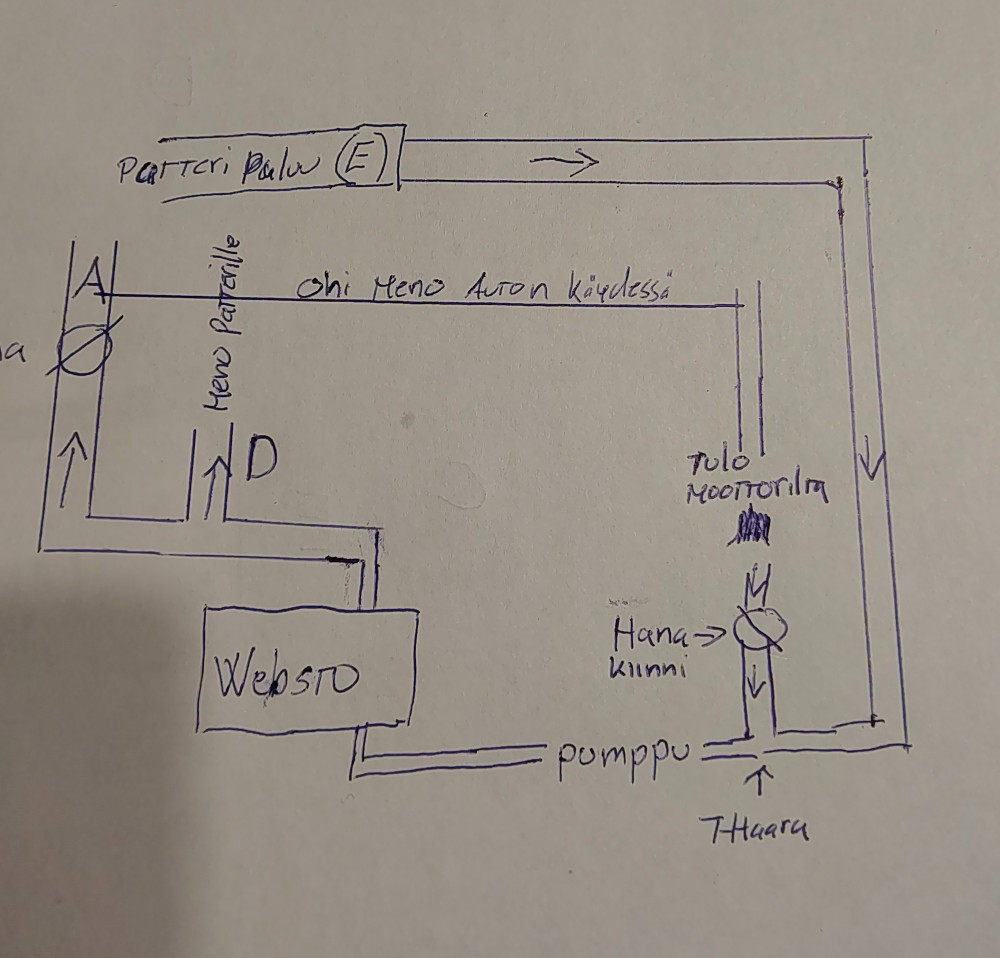 Patteri Paluu (E)
A
Meno Patterille
Ohi Meno Auton käydessä
D
Tulo
Moottorilta
Hana
kiinni
Websto
pumppu
T-Haara